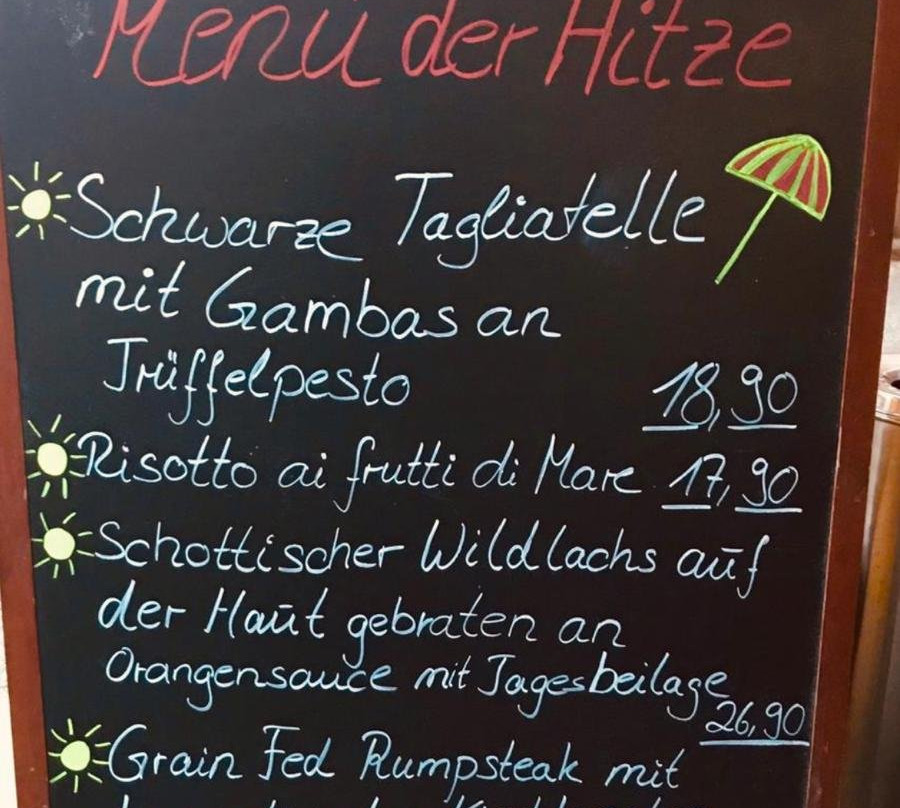 Menü der Hitze
Schwarze Tagliatelle
mit Gambas an
Trüffelpesto 18,90
Risotto ai frutti di Mare 17,90
Schottischer Wildlachs auf
der Haut gebraten an
Orangensauce mit Tagesbeilage
26,90
Grain Fed Rumpsteak mit